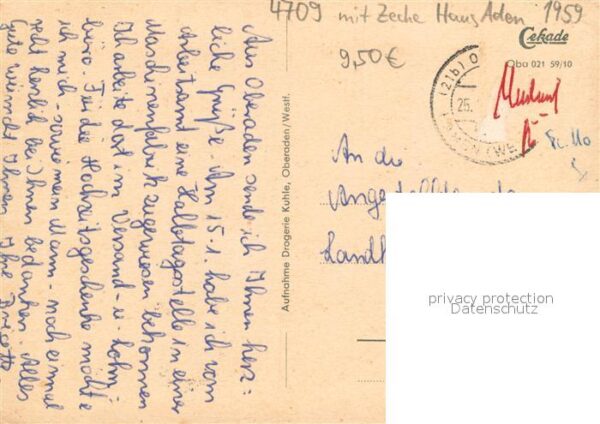 4709 mit Zeche Haus Aden 1959
9,50€
Cekade
Oba 021 59/10
(21b) O
25.
An die
Angestellten de
Landk
Aufnahme Drogerie Kuhle, Oberaden/Westf.
Aus Oberaden sende ich Ihnen herz-
liche Grüße. Am 15.1. habe ich vom
Arbeitsamt eine Halbtagsstelle in einer
Maschinenfabrik zugewiesen bekommen
Ich arbeite dort im Versand- u. Lohn-
büro. Für die Hochzeitsgeschenke möchte
ich mich - sowie mein Mann - noch einmal
recht herzlich bei Ihnen bedanken. Alles
Gute wünscht Ihnen Ihre
privacy protection
Datenschutz